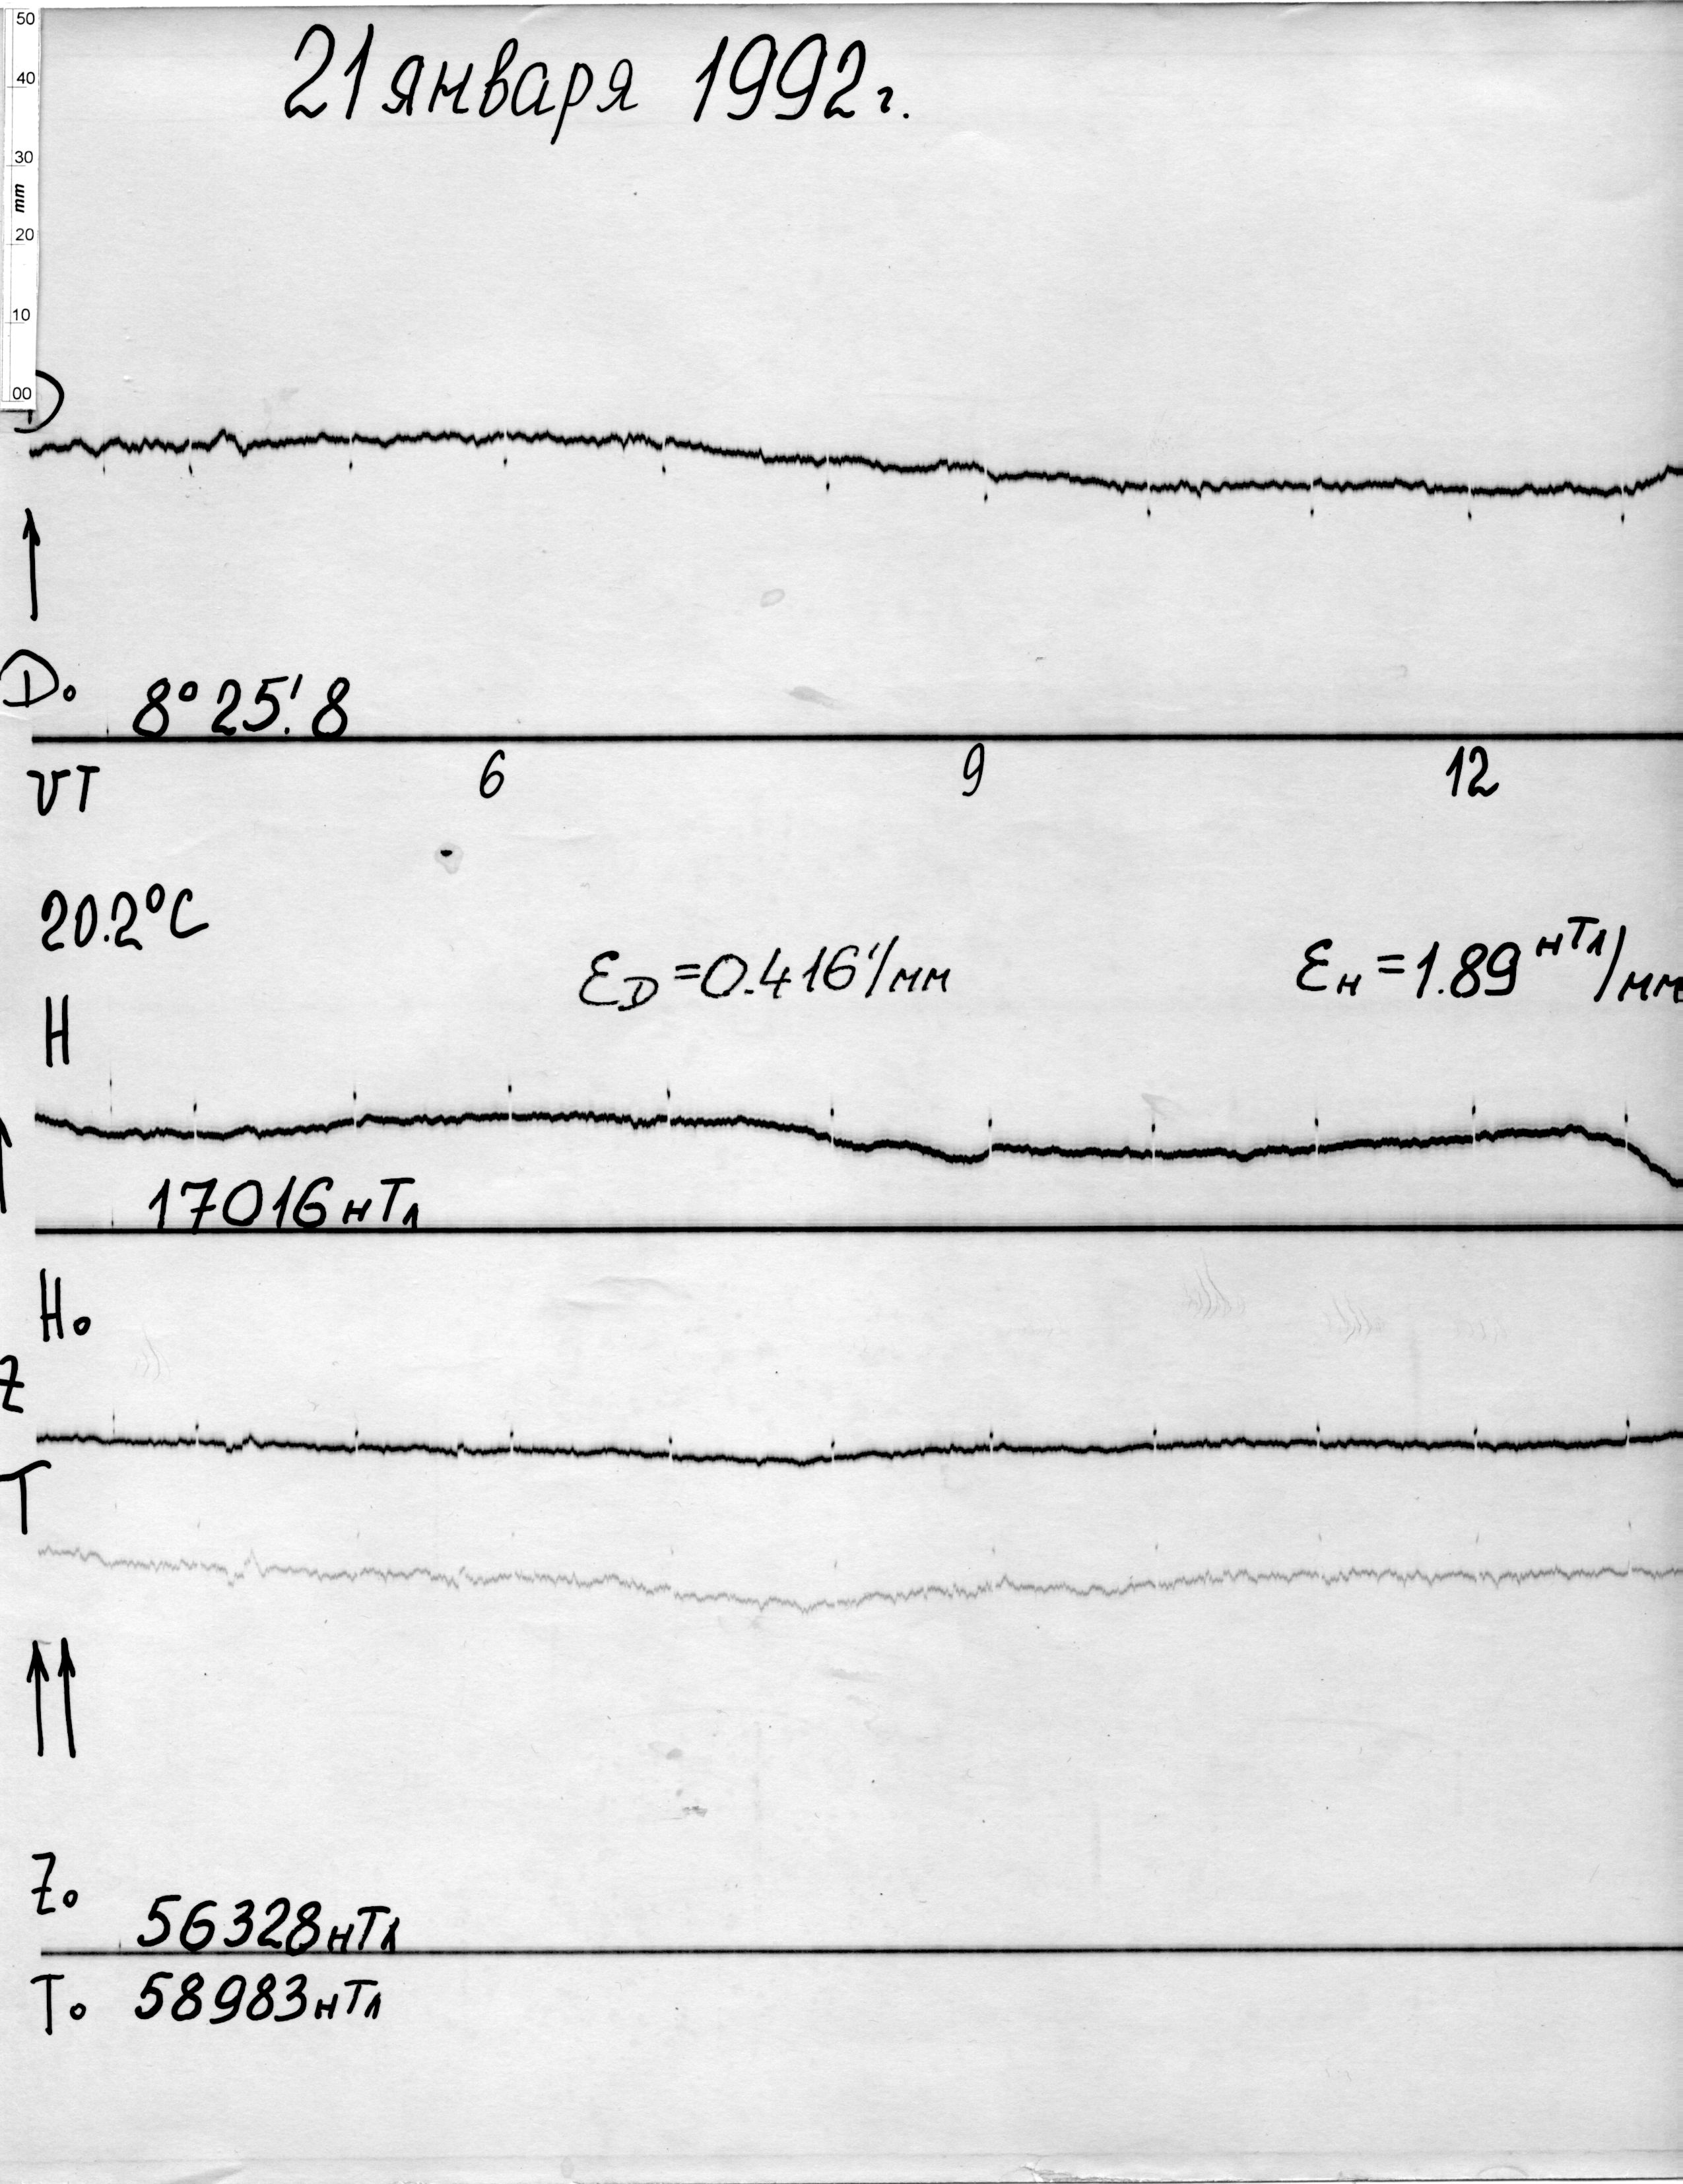 50
40
30
mm
20
10
00
21 января 1992 г.
D
D₀ 8°25!8
UT 6 9 12
20.2°C
ℰD = 0.416'/мм ℰH = 1.89 нТл/мм
H
17016 нТл
H₀
Z
T
Z₀ 56328 нТл
T₀ 58983 нТл